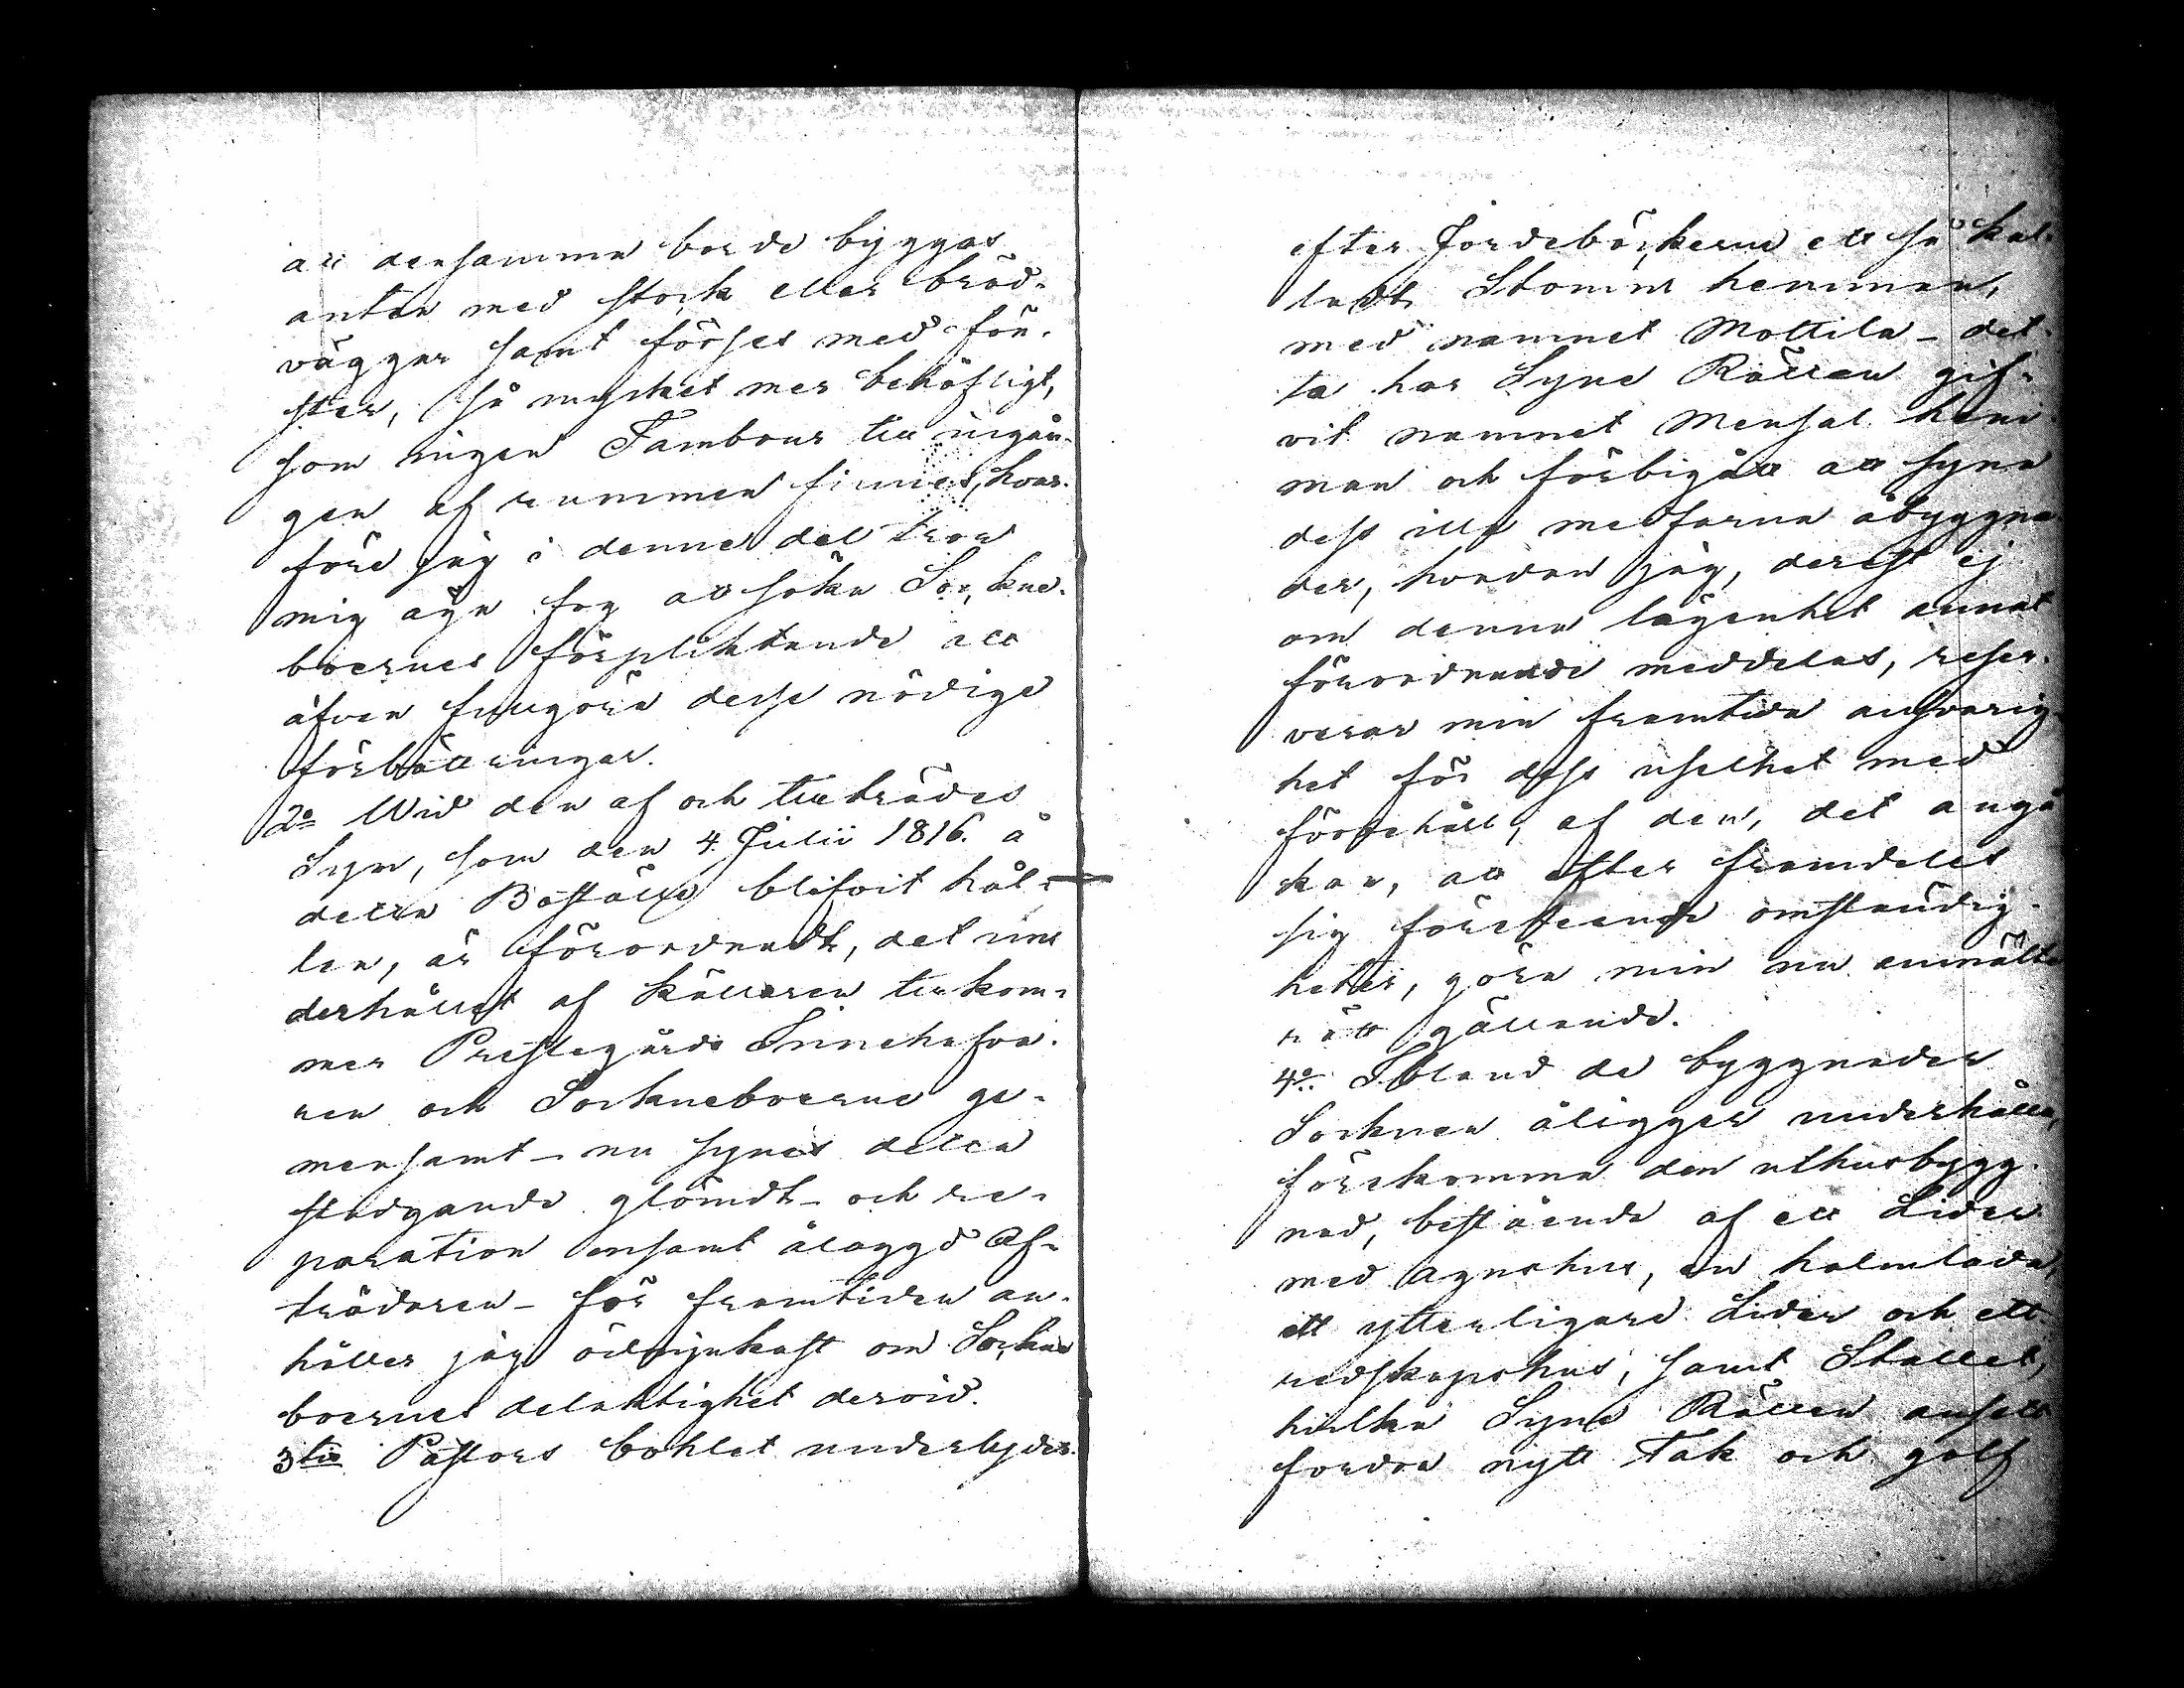 att densamma borde byggas
antin med stock eller bräd-
väggar samt förses med fön-
ster, så mycket mer behöfligt,
som ingen Tambour till ingån-
gen af rummen finnes, hvar-
före jag i denne del tror
mig äga fog att söka Sockne-
boernes förpliktande att
äfven fullgöra desse nödige
förbättringar.
2o Wid den af och tillträdes
Syn, som den 4 Julii 1816. å
detta Boställe blifvit hål-
len, är förordnadt, det un-
derhållet af källaren tillkom-
mer Prestegårds Innehafva-
ren och Sockneboerne ge-
mensamt – nu synes detta
stadgande glömdt – och re-
paration ensamt ålaggd Af-
trädaren – för framtiden an-
håller jag ödmjukast om Sockne
boernes delaktighet dervid.
3tio Pastors bohlet underlyder
efter Jordeböckerne ett så kal-
ladt Stomme hemman,
med namnet Mottila – det-
ta har Syne Rätten gif-
vit namnet Mensal hem-
man och förbigått att syna
dess illa medfarna åbyggna-
der, hvadan jag, derest ej
om denna lägenhet annat
förordnande meddelas, reser-
verar min framtida ansvarig-
het för dess uselhet med
förbehåll, af den, det angå
kan, att efter framdeles
sig företeende omständig-
heter, göra min nu anmälte
rätt gällande.
4o Ibland de byggnader
Socknen åligger underhålla,
förekomma den uthusbygg-
nad, bestående af ett Lider
med agnshus, en halmlada,
ett ytterligare Lider och ett
redskapshus, samt Stallet,
hvilka Syne Rätten ansett
fordra nytt Tak och golf